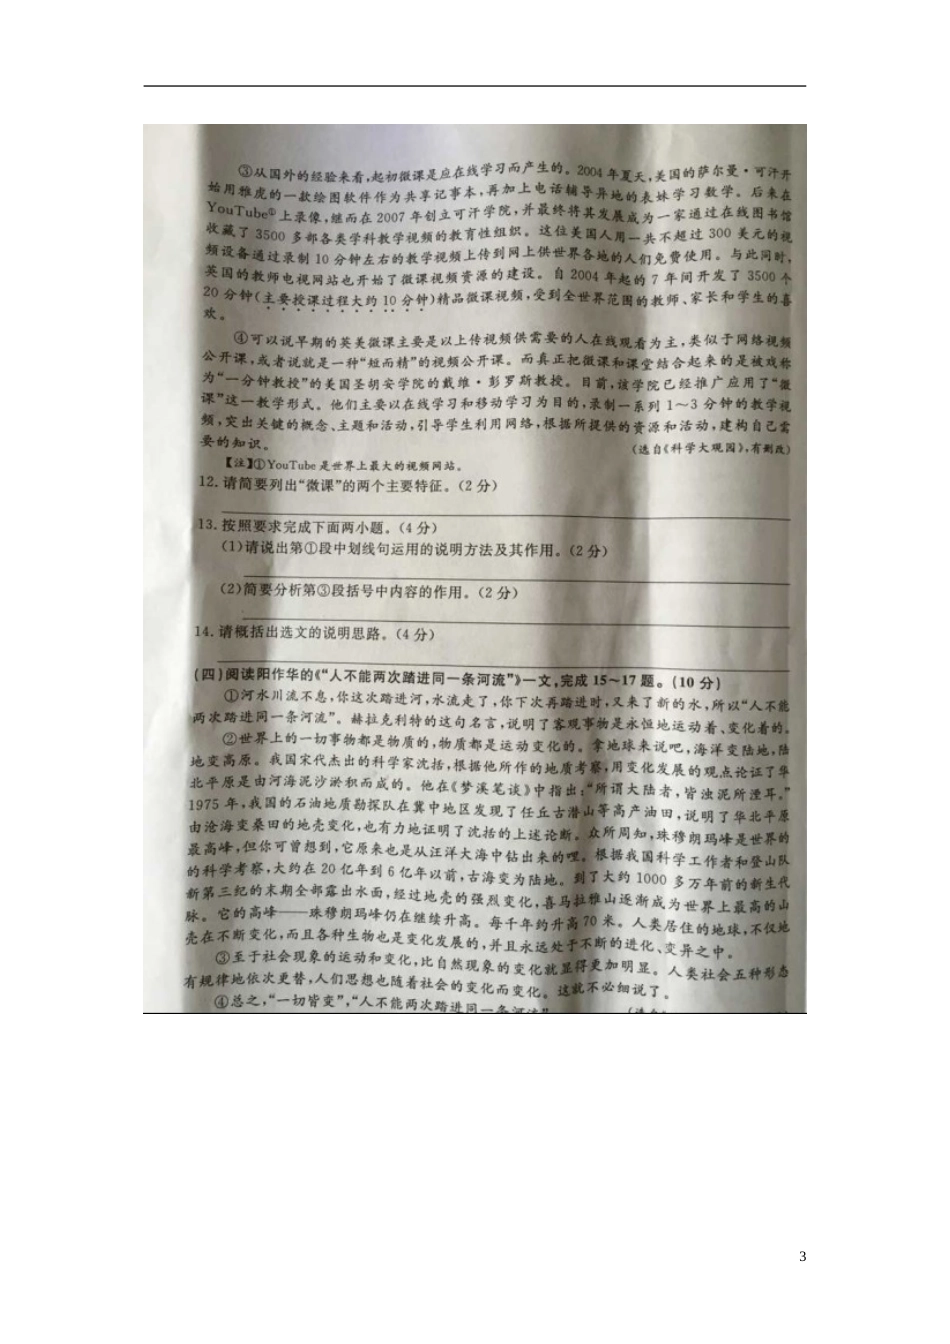 ③从国外的经验来看,起初微课是应在线学习而产生的。2004年夏天,美国的萨尔曼·可汗开
始用雅虎的一款绘图软件作为共享记事本,再加上电话辅导异地的表妹学习数学。后来在
YouTube①上录像,继而在2007年创立可汗学院,并最终将其发展成为一家通过在线图书馆
收藏了3500多部各类学科教学视频的教育性组织。这位美国人用一共不超过300美元的视
频设备通过录制10分钟左右的教学视频上传到网上供世界各地的人们免费使用。与此同时,
英国的教师电视网站也开始了微课视频资源的建设。自2004年起的7年间开发了3500个
20分钟(主要授课过程大约10分钟)精品微课视频,受到全世界范围的教师、家长和学生的喜
欢。
④可以说早期的英美微课主要是以上传视频供需要的人在线观看为主,类似于网络视频
公开课,或者说就是一种“短而精”的视频公开课。而真正把微课和课堂结合起来的是被戏称
为“一分钟教授”的美国圣胡安学院的戴维·彭罗斯教授。目前,该学院已经推广应用了“微
课”这一教学形式。他们主要以在线学习和移动学习为目的,录制一系列1～3分钟的教学视
频,突出关键的概念、主题和活动,引导学生利用网络,根据所提供的资源和活动,建构自己需
要的知识。
(选自《科学大观园》,有删改)
【注】①YouTube是世界上最大的视频网站。
12.请简要列出“微课”的两个主要特征。(2分)
13.按照要求完成下面两小题。(4分)
(1)请说出第①段中划线句运用的说明方法及其作用。(2分)
(2)简要分析第③段括号中内容的作用。(2分)
14.请概括出选文的说明思路。(4分)
(四)阅读阳作华的《“人不能两次踏进同一条河流”》一文,完成15～17题。(10分)
①河水川流不息,你这次踏进河,水流走了,你下次再踏进时,又来了新的水,所以“人不能
两次踏进同一条河流”。赫拉克利特的这句名言,说明了客观事物是永恒地运动着、变化着的。
②世界上的一切事物都是物质的,物质都是运动变化的。拿地球来说吧,海洋变陆地,陆
地变高原。我国宋代杰出的科学家沈括,根据他所作的地质考察,用变化发展的观点论证了华
北平原是由河海泥沙淤积而成的。他在《梦溪笔谈》中指出:“所谓大陆者,皆浊泥所湮耳。”
1975年,我国的石油地质勘探队在冀中地区发现了任丘古潜山等高产油田,说明了华北平原
由沧海变桑田的地壳变化,也有力地证明了沈括的上述论断。众所周知,珠穆朗玛峰是世界的
最高峰,但你可曾想到,它原来也是从汪洋大海中钻出来的哩。根据我国科学工作者和登山队
的科学考察,大约在20亿年到6亿年以前,古海变为陆地。到了大约1000多万年前的新生代
新第三纪的末期全部露出水面,经过地壳的强烈变化,喜马拉雅山逐渐成为世界上最高的山
脉。它的高峰——珠穆朗玛峰仍在继续升高。每千年约升高70米。人类居住的地球,不仅地
壳在不断变化,而且各种生物也是变化发展的,并且永远处于不断的进化、变异之中。
③至于社会现象的运动和变化,比自然现象的变化就显得更加明显。人类社会五种形态
有规律地依次更替,人们思想也随着社会的变化而变化。这就不必细说了。
④总之,“一切皆变”,“人不能两次踏进同一条河流”
3